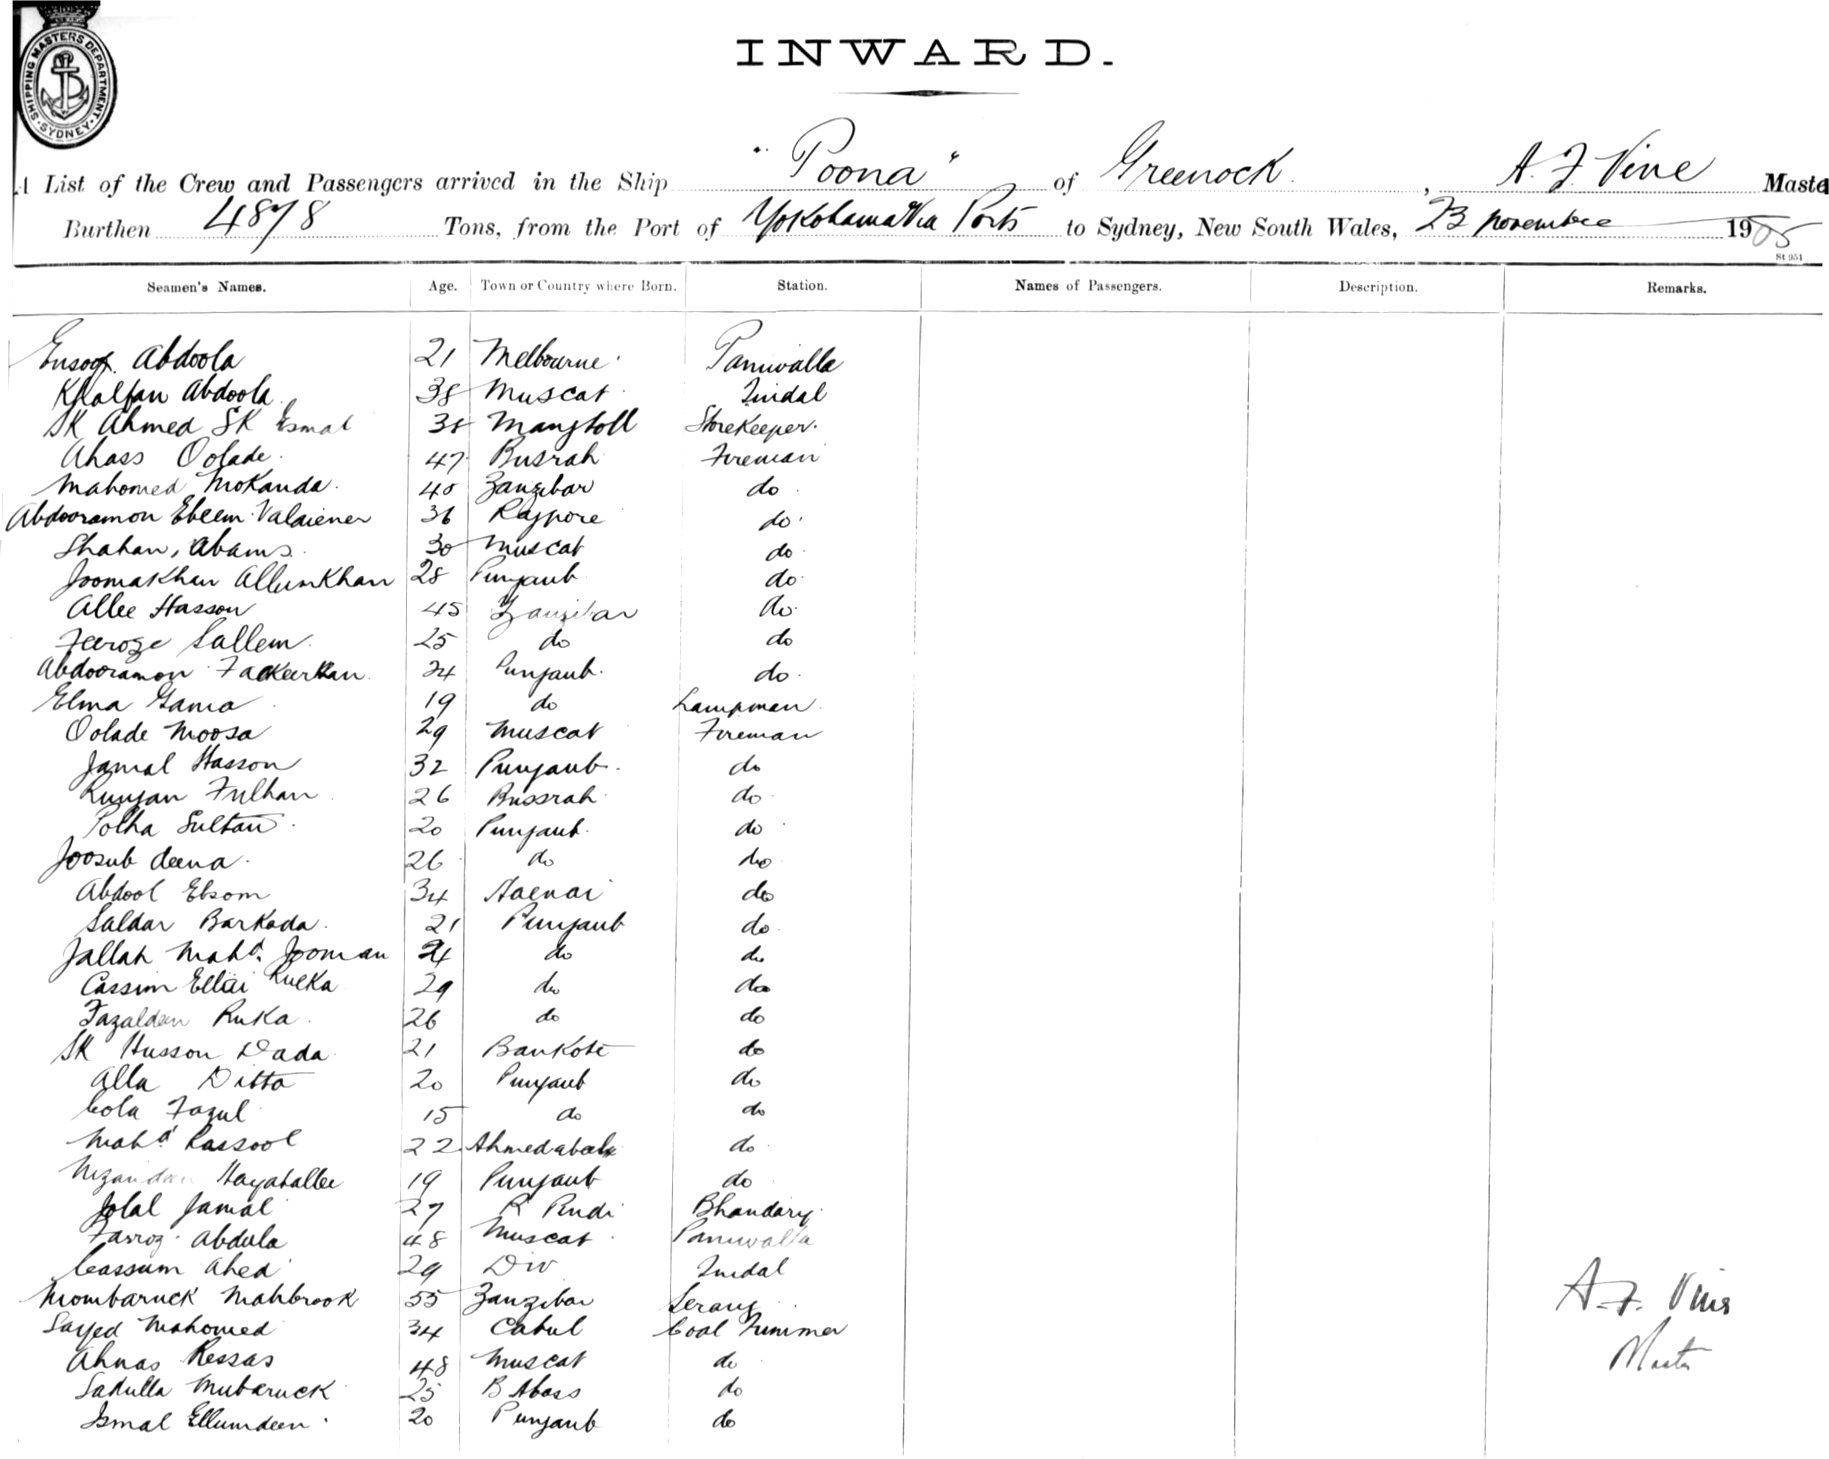 SHIPPING MASTERS DEPARTMENT. SYDNEY.
INWARD.
A List of the Crew and Passengers arrived in the Ship "Poona" of Greenock, A. F. Vine Maste
Burthen 4878 Tons, from the Port of Yokohama Via Ports to Sydney, New South Wales, 23 November 1905
St 951
Seamen's Names. Age. Town or Country where Born. Station. Names of Passengers. Description. Remarks.
Abdoola 21 Melbourne Paniwalla
Khalfan Abdoola 38 Muscat Tindal
SK Ahmed SK Esmal Storekeeper.
Ahass Oolade 47 Busrah Fireman
Mahomed Mokanda 40 Zanzibar do
Abdooramon Ebeem Valaiener 36 Rajpore do
Shahan, Abams 30 Muscat do
Joomakhan Allumkhan 28 Punjaub do
Allee Hasson 45 Zanzibar do
Feeroze Sallem 25 do do
Abdooramon Fackeerkan 24 Punjaub do
Elma Gama 19 do Lampman
Oolade Moosa 29 Muscat Fireman
Jamal Hasson 32 Punjaub do
Fulhan 26 Bussrah do
Polha Sultan 20 Punjaub do
Joosub deena 26 do do
Abdool Ebsom 34 do
Saldar Barkada 21 Punjaub do
Jallah Mahd. Jooman do do
Cassim Ellai Rulka 29 do do
Fazaldeen Ruka 26 do do
SK Husson Dada 21 Bankote do
Alla Ditta 20 Punjaub do
Cola Fazul 15 do do
Mahd Rassool 22 Ahmedabad do
Nizamdeen Hayatallee 19 Punjaub do
Jolal Jamal 27 R Pindi Bhandary
Farroz Abdula 48 Muscat Paniwalla
Cassum Ahed 29 Div Tindal
Mombaruck Mahbrook 55 Zanzibar Serang
Sayed Mahomed 34 Cabul Coal Trimmer
Ahnas Ressas 48 Muscat do
Sadulla Mubaruck 25 B Abass do
Ismal Ellumdeen 20 Punjaub do
A. F. Vine
Master